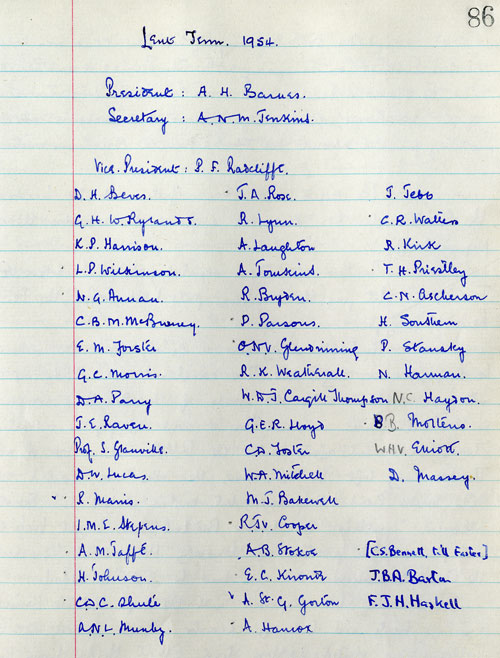 86
Lent Term. 1954.
President : A. H. Barnes.
Secretary : A. N. M. Jenkins.
Vice. President : P. F. Radcliffe.
D. H. Beves. J. A. Rose. J. Jebb
G. H. W. Rylands. R. Lynn. C. R. Walters
K. P. Harrison. A. Laughton R. Kirk
L. P. Wilkinson. A. Tomkins. T. H. Priestley
N. G. Annan. R. Bryden. C. N. Ascherson
C. B. M. McBurney. D. Parsons. H. Southern
E. M. Forster O. N. V. Glendinning P. Stansky
G. C. Morris. R. K. Weatherall. N. Harman.
D. A. Parry W. D. J. Cargill Thompson N. C. Haydon.
J. E. Raven. G. E. R. Lloyd B. Molteno.
Prof. S. Glanville. C. D. Foster W. H. V. Elliott.
D. W. Lucas. W. A. Mitchell D. Massey.
R. Marris. M. J. Bakewell
I. M. E. Stephens. R. J. V. Cooper
A. M. Jaffé. A. B. Stokoe [C. S. Bennett, till Easter]
H. Johnson. E. C. J. B. A. Barton
C. D. C. A. St. G. Gorton F. J. H. Haskell
A. N. L. Munby. A. Hamor